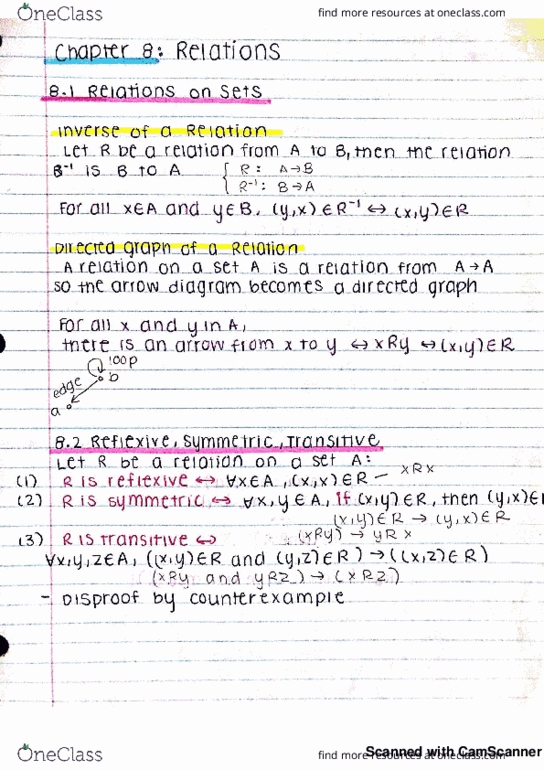 OneClass
find more resources at oneclass.com
Chapter 8: Relations
8.1 Relations on Sets
Inverse of a Relation
Let R be a relation from A to B, then the relation
B⁻¹ is B to A { R: A→B
R⁻¹: B→A
For all x∈A and y∈B, (y,x)∈R⁻¹ ↔ (x,y)∈R
Directed graph of a Relation
A relation on a set A is a relation from A→A
so the arrow diagram becomes a directed graph
For all x and y in A,
there is an arrow from x to y ↔ xRy ↔ (x,y)∈R
loop
edge b
a
8.2 Reflexive, Symmetric, Transitive
Let R be a relation on a set A:
(1) R is reflexive ↔ ∀x∈A, (x,x)∈R — xRx
(2) R is symmetric ↔ ∀x,y∈A, If (x,y)∈R, then (y,x)∈
(x,y)∈R → (y,x)∈R
(3) R is transitive ↔ (xRy) → yRx
∀x,y,z∈A, ((x,y)∈R and (y,z)∈R) → ((x,z)∈R)
(xRy and yRz) → (xRz)
- Disproof by counterexample
OneClass
find more resources at oneclass.com
Scanned with CamScanner